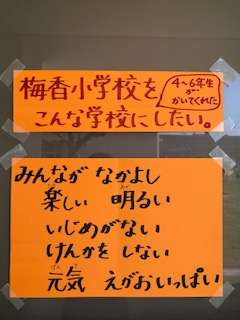 梅香小学校を
こんな学校にしたい。
4〜6年生
が
かいてくれた
みんなが なかよし
楽しい 明るい
いじめがない
けんかを しない
元気 えがおいっぱい